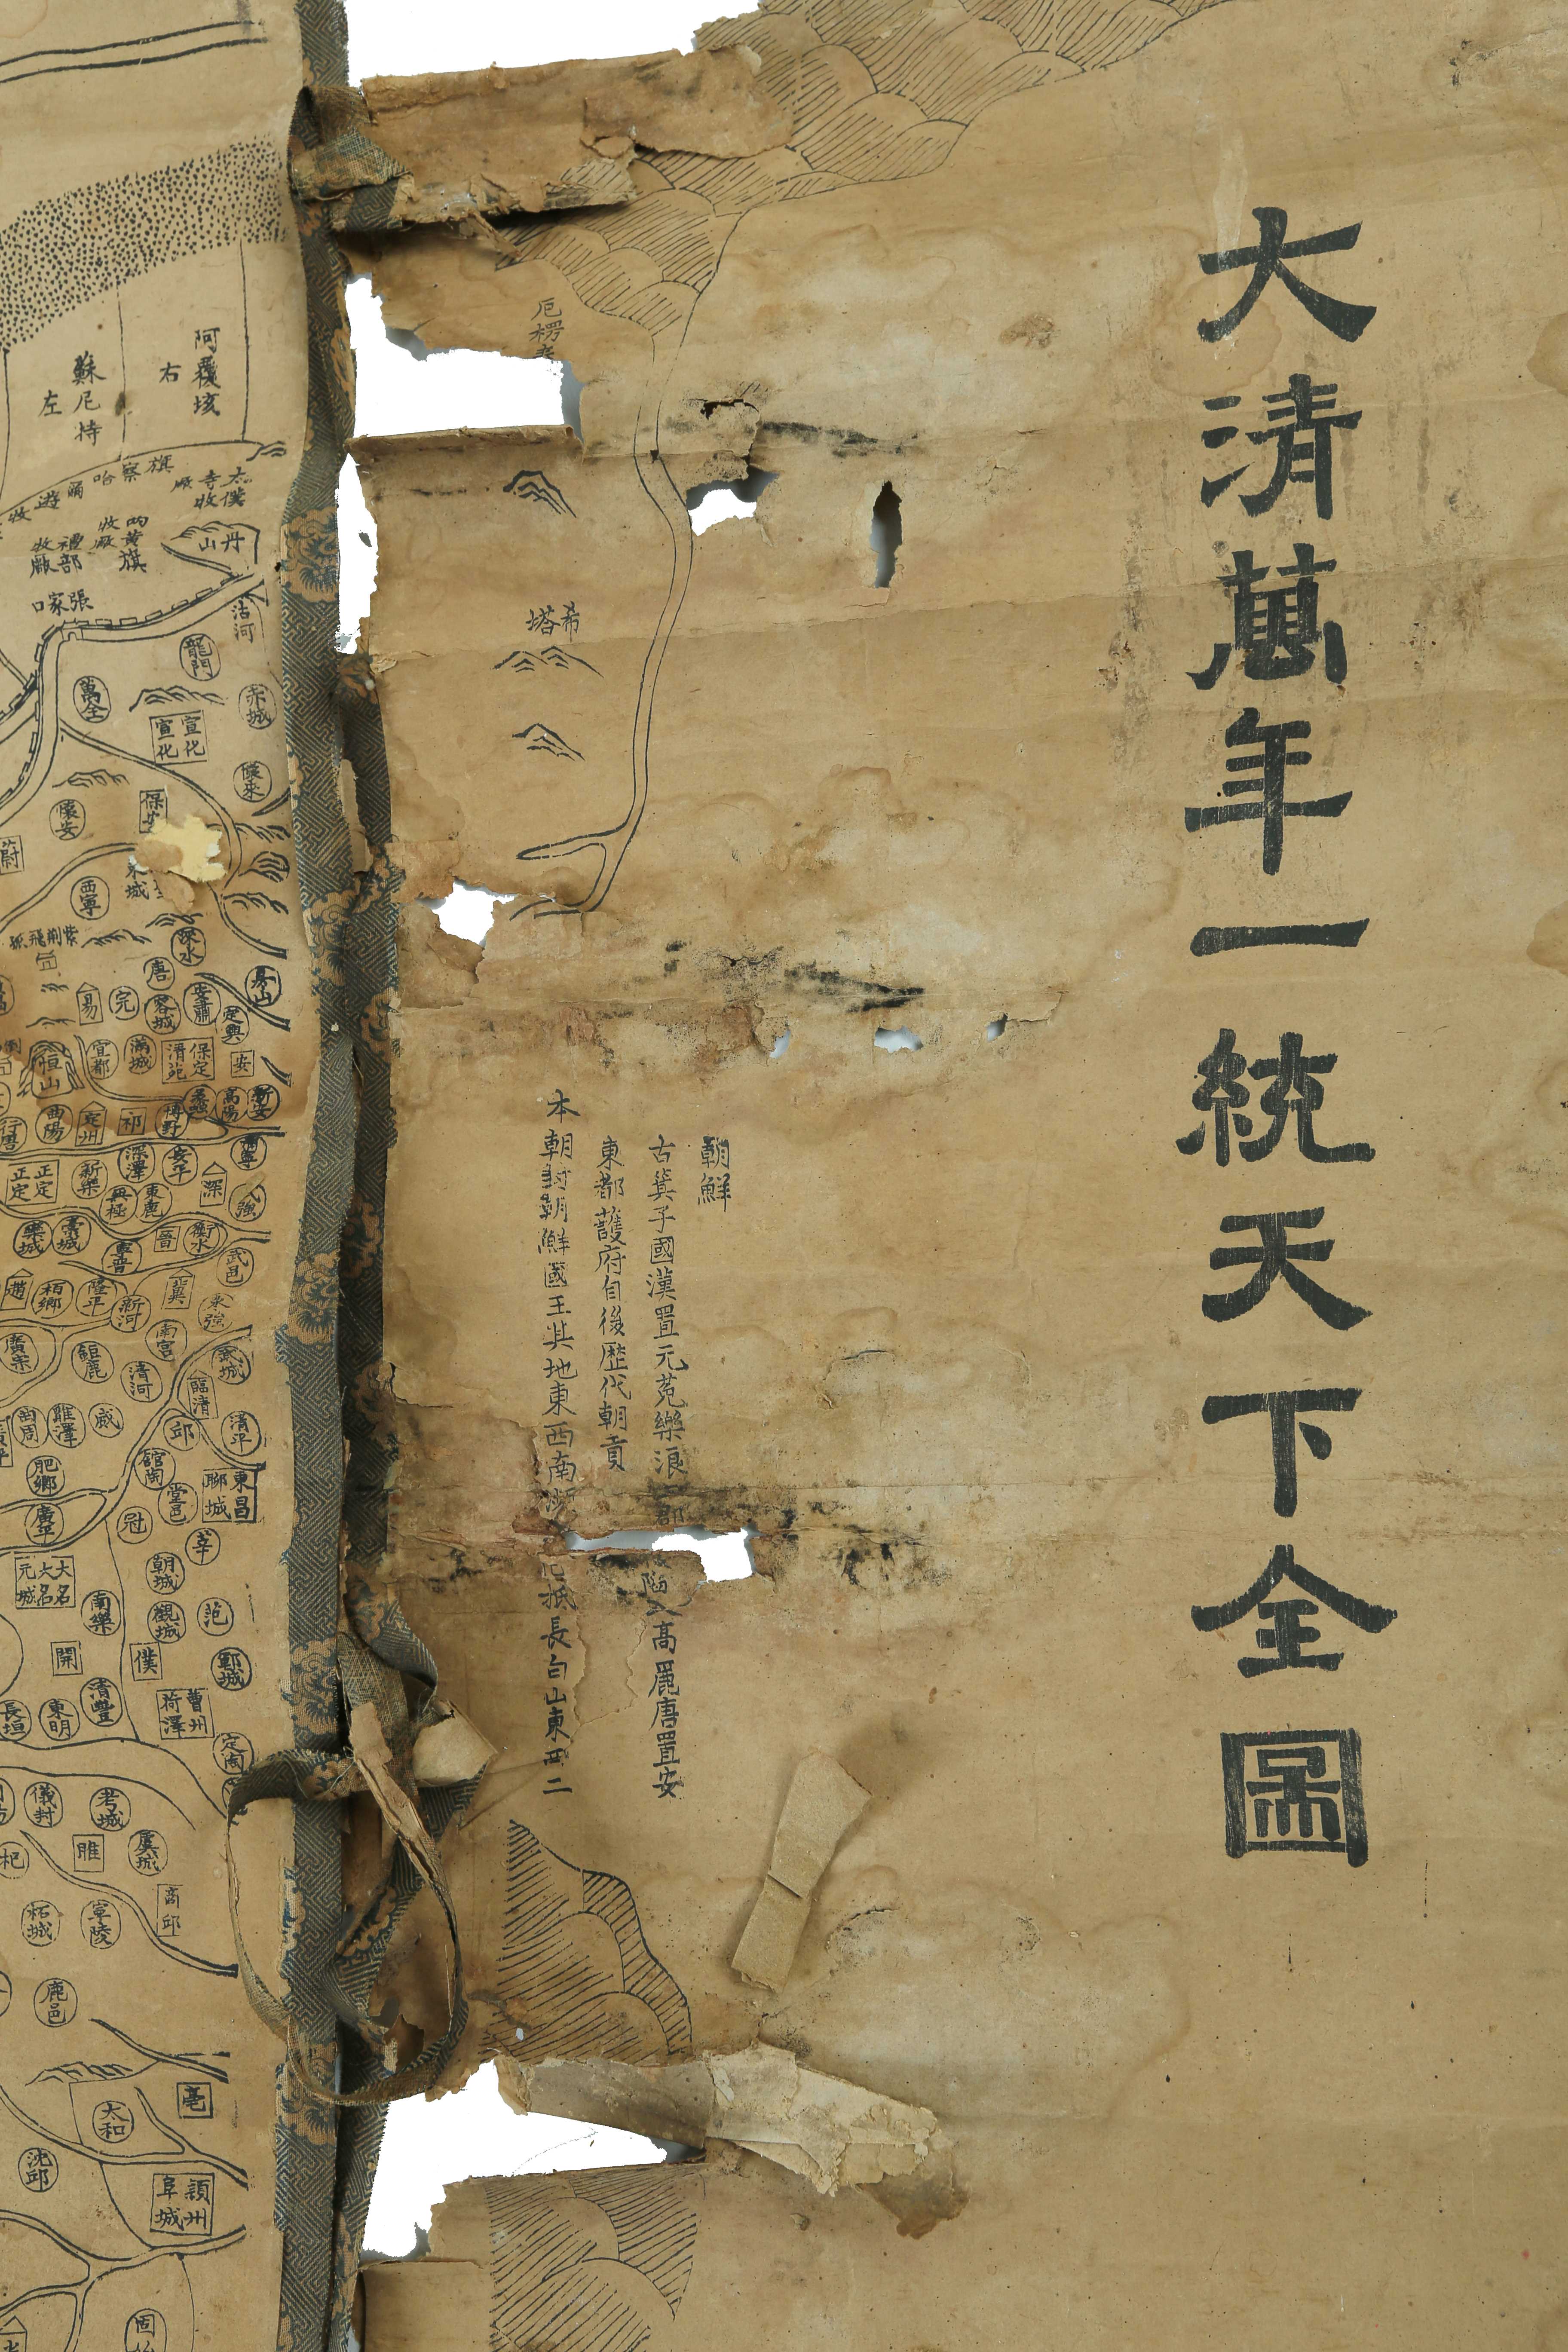 大清萬年一統天下全圖
朝鮮
古箕子國漢置元菟樂浪郡
陷入高麗唐置安
東都護府自後歷代朝貢
本朝封朝鮮國王其地東西南
抵長白山東西二
希
塔
阿霸垓
右
蘇尼特
左
太僕
寺牧
廠
兩黃旗
牧廠
禮部
牧廠
丹山
張家口
沽河
龍門
赤城
萬全
宣化
宣化
懷來
懷安
蔚
西寧
紫荆
飛狐
淶水
唐
易
完
容城
安肅
定興
房山
恒山
滿城
保定
清苑
安
曲陽
定州
祁
博野
蠡
高陽
新安
行唐
正定
正定
新樂
深澤
安平
肅寧
無極
東鹿
深
武強
欒城
藁城
晉
衡水
武邑
趙
柏鄉
隆平
新河
冀
棗強
廣宗
鉅鹿
南宮
清河
武城
臨清
曲周
雞澤
威
邱
清平
肥鄉
館陶
堂邑
東昌
聊城
廣平
冠
莘
大名
大名
元城
朝城
南樂
觀城
范
開
濮
鄆城
長垣
東明
清豐
曹州
菏澤
定陶
儀封
考城
杞
睢
虞城
柘城
寧陵
商邱
鹿邑
亳
太和
沈邱
潁州
阜城